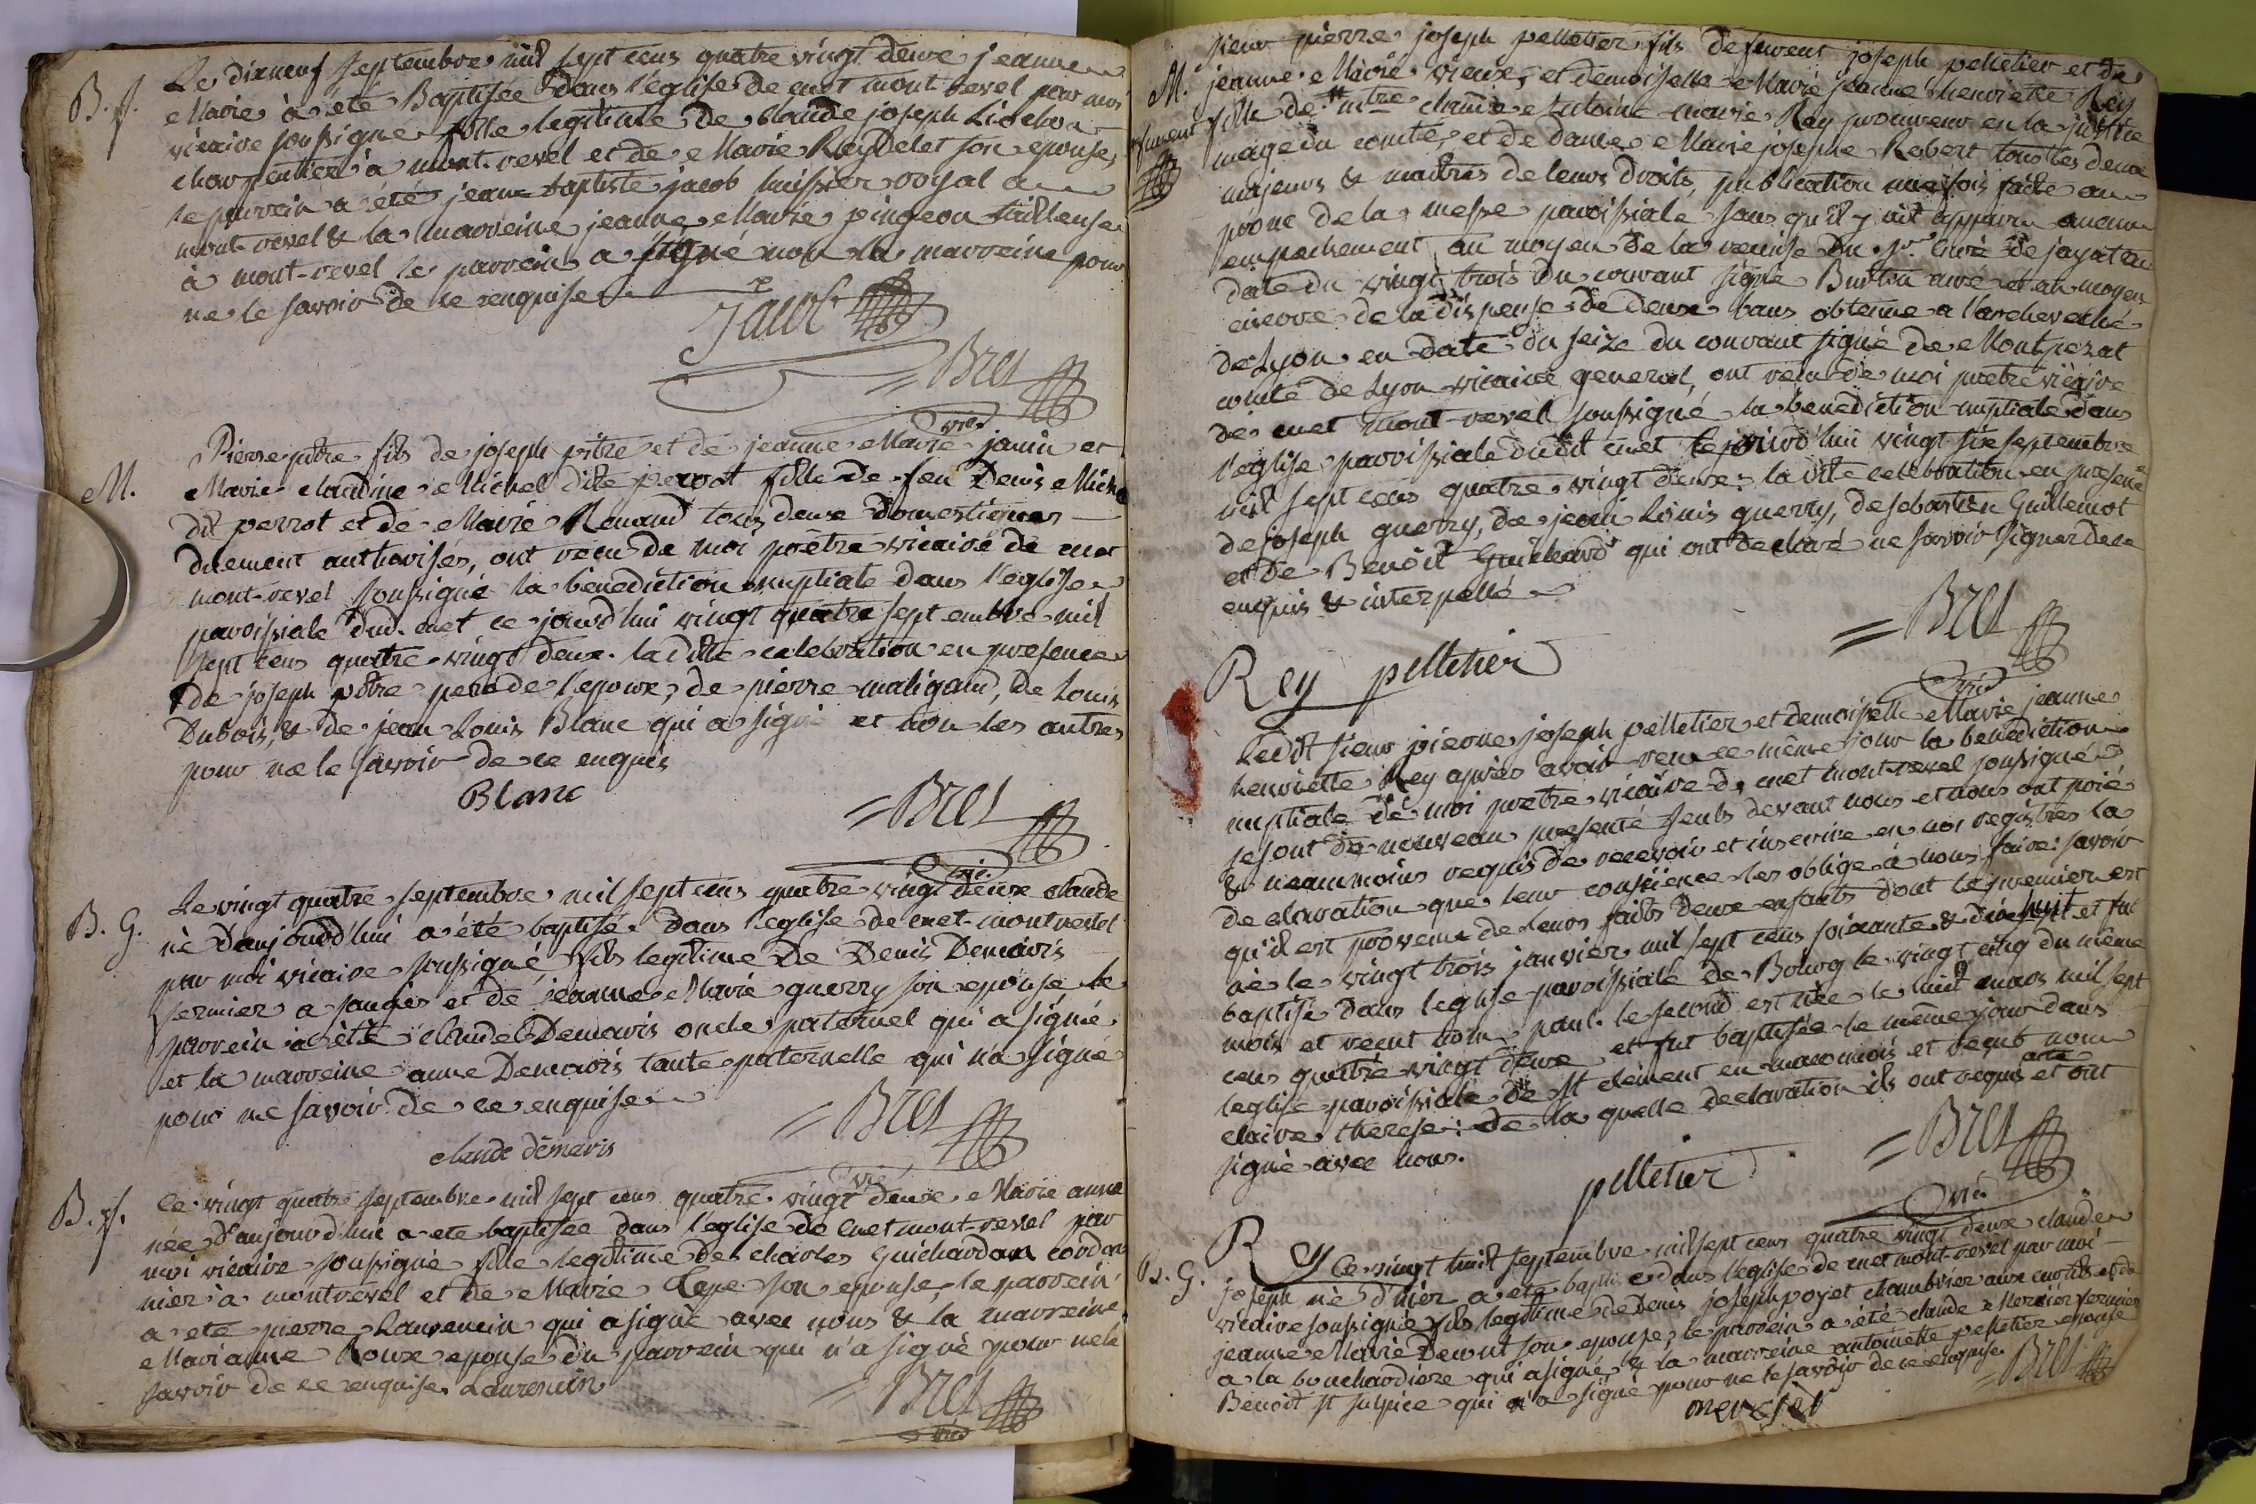 B. f.
Le dixneuf septembre mil sept cens quatre vingt deux jeanne
Marie à été Baptisée dans l'eglise de cuet mont-revel par moi
vicaire soussigné fille legitime de Claude joseph Liochon
charpentier à mont-revel et de Marie Reydelet son epouse,
le parrein a été jeanne baptiste jacob huissier royal a
mont-revel & la marreine jeanne Marie pingeon tailleuse
à mont-revel le parrein a signé non la marreine pour
ne le savoir de ce enquise
Jacob
= Bret
vic.
M.
Pierre pitre fils de joseph pitre et de jeanne Marie janin et
Marie claudine Michel dite perrot fille de feu Denis Michel
dit perrot et de Marie Renaud tous deux domestiques
duement authorisés, ont recu de moi prêtre vicaire de cuet
mont-revel soussigné la bénédiction nuptiale dans l'eglise
paroissiale dud. cuet ce jourd'hui vingt quatre septembre mil
sept cens quatre-vingt deux. la dite celebration en presence
de joseph pitre pere de l'epoux, de pierre maligand, de Louis
Dubois, & de jean Louis Blanc qui a signé et non les autres
pour ne le savoir de ce enquis
Blanc
= Bret
vic.
B. G.
Le vingt quatre septembre mil sept cens quatre vingt deux claude
né d'aujourd'hui a été baptisé dans l'eglise de cuet-montrevel
par moi vicaire soussigné fils legitime de Denis Demaris
fermier a sanciés et de jeanne Marie guerry son epouse le
parrein a été claude Demaris oncle paternel qui a signé
et la marreine anne Demaris tante paternelle qui n'a signé
pour ne savoir de ce enquise
= Bret
claude démaris
vic
B. f.
Ce vingt quatre septembre mil sept cens quatre-vingt deux Marie anne
née d'aujourd'hui a ete baptisée dans l'eglise de Cuet mont-revel par
moi vicaire soussigné fille legitime de charles Guichardan cordon
nier à montrevel et de Marie Cape son epouse, le parrein
a ete pierre Laurencin qui a signé avec nous & la marreine
Marianne Roux epouse du parrein qui n'a signé pour ne le
savoir de ce enquise Laurencin
= Bret
vic
M.
Sieur pierre joseph pelletier fils de furent joseph pelletier et de
jeanne Marie vieux, et demoiselle Marie jeanne henriette Rey
fille de mtre claude Antoine marie Rey procureur en la justice
mage du comté, et de dame Marie josephe Robert tous les deux
majeurs & maitres de leurs droits, publication une fois faite au
prone de la messe paroissiale sans qu'il y ait apparu aucun
empechement, au moyen de la remise du sr. Curé de jayat en
date du vingt trois du courant signé Burton curé et au moyen
encore de la dispense de deux bans obtenue a l'archeveché
de Lyon en date du seize du courant signé de Montperat
comte de Lyon vicaire general, ont recu de moi prêtre vicaire
de cuet mont-revel soussigné la bénédiction nuptiale dans
l'eglise paroissiale dudit cuet ce jourd'hui vingt six septembre
mil sept cens quatre vingt deux: la dite celebration en presence
de joseph guerry, de jean Louis guerry, de sebastien Guillemot
et de Benoit Guichard qui ont declaré ne savoir signer de ce
enquis & interpellé
= Bret
Rey pelletier
vic
Ledit sieur pierre joseph pelletier et demoiselle Marie jeanne
henriette Rey après avoir recu ce même jour la benediction
nuptiale de moi pretre vicaire de cuet mont-revel soussigné
se sont de nouveau presenté seuls devant nous et nous ont prié
& neanmoins requis de recevoir et inscrire en nos registres la
declaration que leur conscience les oblige à nous faire: savoir
qu'il est provenu de leurs faits deux enfants dont le premier est
né le vingt trois janvier mil sept cens soixante & dixhuit et fut
baptisé dans l'eglise paroissiale de Bourg le vingt cinq du même
mois et recut nom paul. le second est née le huit mars mil sept
cens quatre vingt deux et fut baptisée le même jour dans
l'eglise paroissiale de St clement en maconnois et recut nom
claire therese: de la quelle declaration ils ont requis acte et ont
signé avec nous.
= Bret
pelletier
vic.
Rey
B. G.
Ce vingt huit septembre mil sept cens quatre vingt deux claude
joseph né d'hier a été baptisé dans l'eglise de cuet mont-revel par moi
vicaire soussigné fils legitime de Denis joseph poyet chambrier aux et de
jeanne Marie son epouse, le parrein a été claude Mercier fermier
a la bouchardiere qui a signé & la marreine antoinette pelletier epouse
Benoit st sulpice qui n'a signé pour ne le savoir de ce enquise
= Bret
mercier